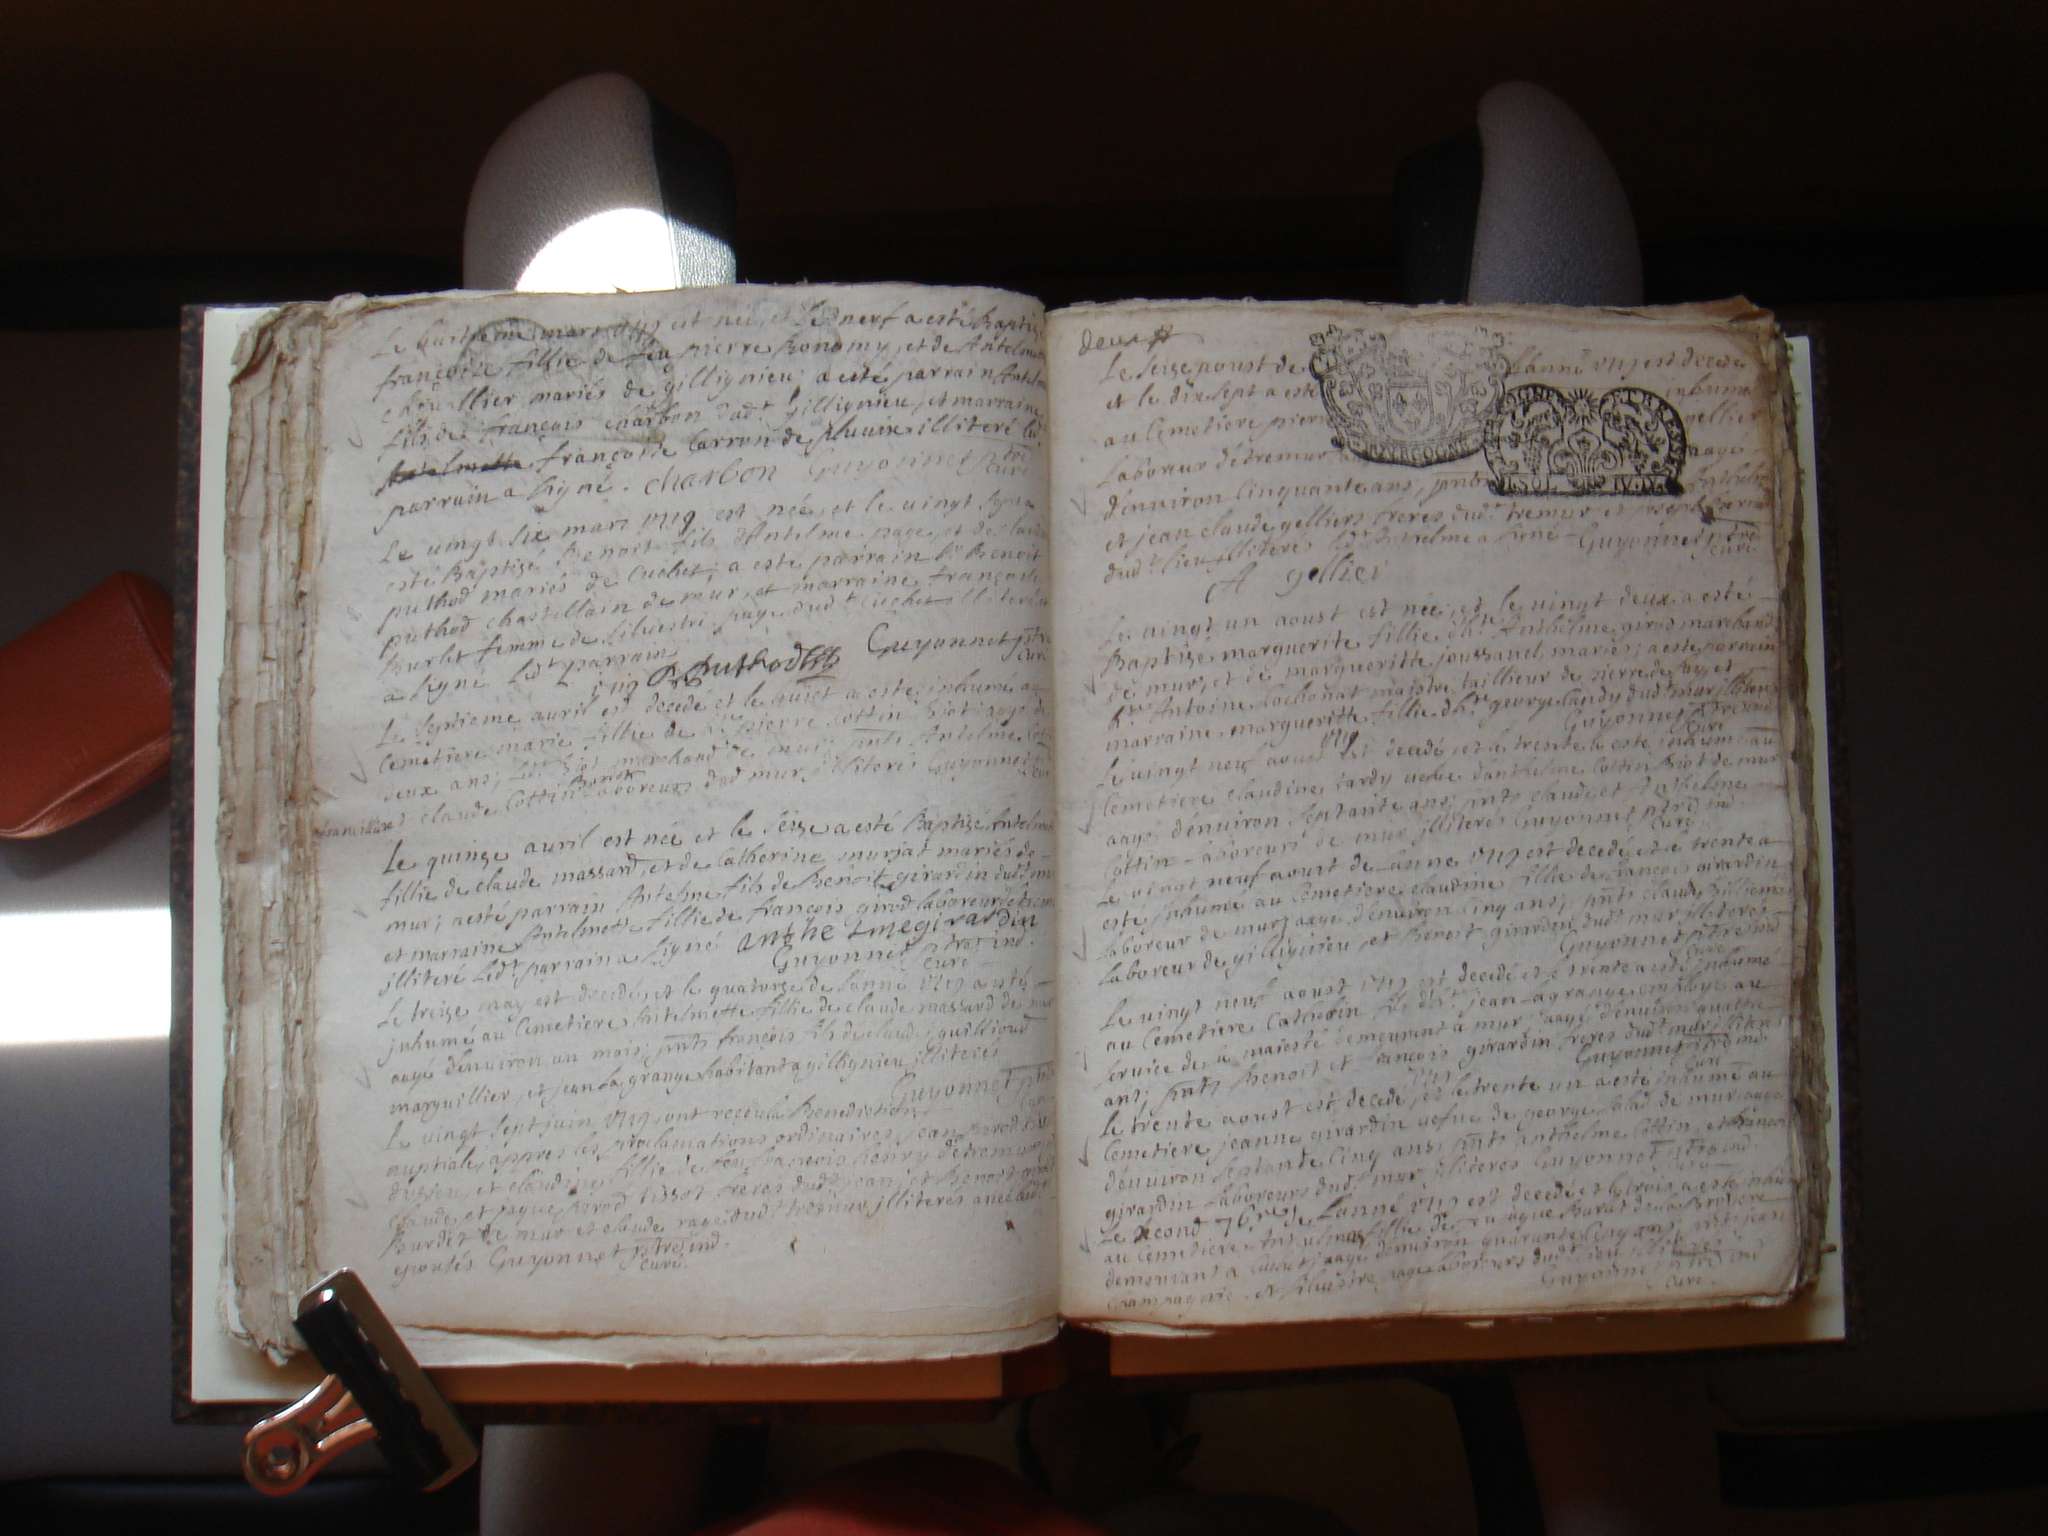 Le huitieme mars 1719 est née, et le nerf a esté Baptizé
françoise fillie de feu pierre Bonomy, et de Antelmette
chevallier mariés de gillignieu; a esté parrain Antelme
fils de françois charbon dud.t gillignieu, et marraine
françoise Carron de pluvie illiteré led.t
parrain a signé. charbon Guyonnet ptre curé
Le vingt six mars 1719 est née, et le vingt sept a
esté Baptisé Benoit fils d'Antelme page, et de claudine
puthod mariés de Cuchet; a esté parrain Sr Benoit
puthod chastellain de mur, et marraine françoise
Burlet femme de Silvestre page dud.t Cuchet illiterée
a signé led.t parrain
B Puthod Guyonnet ptre curé
1719
Le septieme auril est decedé et le huict a esté inhumé au
Cemetiere marie fillie de Sr pierre Cottin Biot aagé de
deux ans; marchand de mur; pnts Antelme
et claude Cottin Laboreurs dud mur, illiterés Guyonnet ptre curé
Le quinze auril est née et le seize a esté Baptizé Antelmette
fillie de claude massard, et de Catherine murjat mariés de
mur; a esté parrain Antelme fils de Benoit girardin dud.t mur
et marraine Antelmette fillie de françois girod laboreur de tremur
illiteré led.t parrain a signé anthe lmegirardin
Guyonnet ptre ind. curé
Le treize may est decedé, et le quatorze de l'anné 1719 a esté
inhumé au Cemetiere Antelmette fillie de claude massard de mur
aagé d'enuiron un mois; pnts françois fils de claude guilliout
marguillier, et jean la grange habitant a gillignieu illiterés
Guyonnet ptre
Le vingt sept juin 1719 ont reçeu la Benediction
nuptiale, appres les proclamations ordinaires, jean perod
d'ussieu, et claudine fillie de feu françois henry de tremur
claude et jaque perod tissot freres dud.t jean, et Benoit
Burdet de mur et claude page dud.t tremur illiterés auec led.t
epoutés Guyonnet ptre ind. curé
deux
Le seize aoust de l'anné 1719 est decedé
et le dix sept a esté inhumé
au Cemetiere pierre gellier
Laboreur de tremur aagé
d'enuiron Cinquante ans, pnts Antelme
et jean claude gelliers freres dud.t tremur et joseph
dud.t lieu illiterés led.t Antelme a signé Guyonnet ptre curé
A gellier
BOURGOGNE
Le vingt un aoust est née, et le vingt deux a esté
Baptisé marguerite fillie d'h.te Anthelme girod marchand
de mur, et de margueritte joussand, mariés; a esté parrain
h.te Antoine Corbonat maistre taillieur de pierre de Say, et
marraine margueritte fillie d'h.te george landy dud.t mur illiterés
Guyonnet ptre ind. curé
1719
Le vingt neuf aoust est decedé, et le trente a esté inhumé au
Cemetiere claudine tardy vefve d'anthelme Cottin Biot de mur
aagé d'enuiron septante ans; pnts claude et Anthelme
Cottin Laboreurs de mur illiterés Guyonnet ptre ind. curé
Le vingt neuf aoust de l'anne 1719 est decedé et le trente a
esté inhumé au Cemetiere claudine fillie de françois girardin
laboreur de mur, aagé d'enuiron Cinq ans; pnts claude
Laboreur de gillignieu et Benoit girardin dud.t mur illiterés
Guyonnet ptre ind. curé
Le vingt neuf aoust 1719 est decedé et le trente a esté inhumé
au Cemetiere Catherin fils d'h.te jean Lagrange employé au
seruice de sa maiesté demeurant a mur aagé d'enuiron quatre
ans; pnts Benoit et françois girardin freres dud.t mur illiterés
Guyonnet ptre ind. curé
1719
Le trente aoust est decede, et le trente un a esté inhumé au
Cemetiere jeanne girardin vefue de george Salad de mur aagé
d'enuiron septante Cinq ans; pnts anthelme Cottin, et françois
girardin Laboreurs dud.t mur illiteres Guyonnet ptre ind. curé
Le second 7bre de l'anné 1719 est decedé et le trois a esté inhumé
au Cemetiere fillie de jaque Barat de la Bruyere
demeurant a Cuchet, aagé d'enuiron quarante Cinq ans; pnts jean
Champagnie et siluestre page laboreurs dud.t lieu illiterés
Guyonnet ptre ind curé